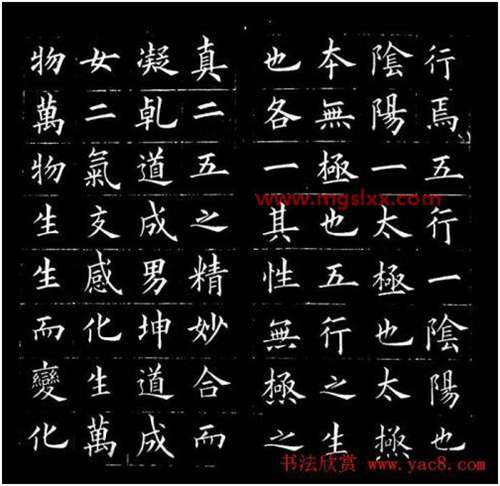 行焉五行一陰陽也
陰陽一太極也太極
本無極也五行之生
也各一其性無極之
真二五之精妙合而
凝乹道成男坤道成
女二氣交感化生萬
物萬物生生而變化
www.mgslxx.com
书法欣赏 www.yac8.com